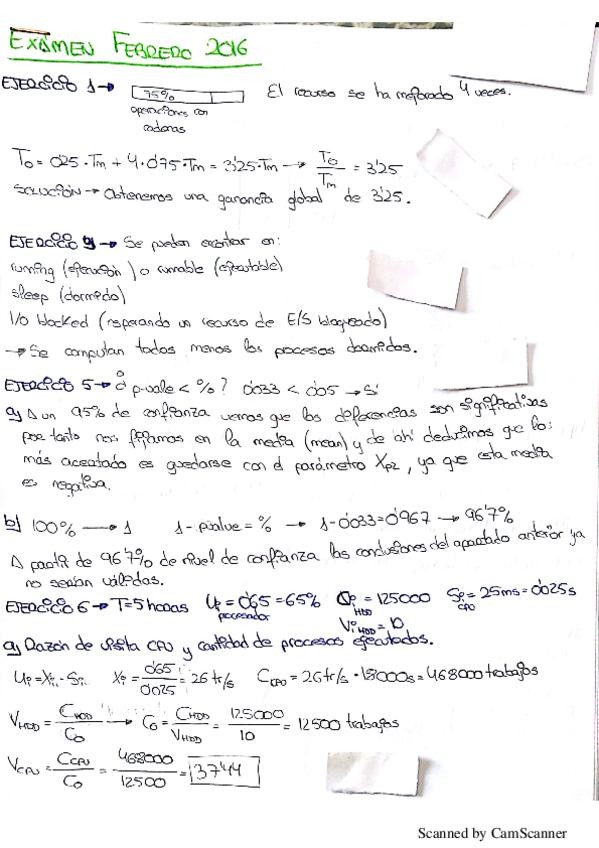 EXÁMEN FEBRERO 2016
EJERCICIO 1→ 75% El recurso se ha mejorado 4 veces.
operaciones con
cadenas
To = 0'25 · Tm + 4 · 0'75 · Tm = 3'25 · Tm → To/Tm = 3'25
SOLUCIÓN → Obtenemos una ganancia global de 3'25.
EJERCICIO → Se pueden encontrar en:
running (ejecución) o runnable (ejecutable)
sleep (dormido)
I/O blocked (esperando un recurso de E/S bloqueado)
→ Se computan todos menos los procesos dormidos.
EJERCICIO 5 → a p-value < % ? 0'033 < 0'05 → Sí
a) A un 95% de confianza vemos que las diferencias son significativas
por tanto nos fijamos en la media (mean) y de ahí deducimos que lo
más acertado es quedarse con el parámetro Xp2, ya que esta media
es negativa.
b) 100% → 1 1 - pvalue = % → 1 - 0'033 = 0'967 → 96'7%
A partir de 96'7% de nivel de confianza las conclusiones del apartado anterior ya
no serían válidas.
EJERCICIO 6 → T = 5 horas Up = 0'65 = 65% = 125000 = 25ms = 0'025s
procesador HDD CPU
Vi HDD = 10
a) Razón de visita CPU y cantidad de procesos ejecutados.
Ui = Xi · Si Xi = 0'65/0'025 = 26 tr/s CCPU = 26 tr/s · 18000s = 468000 trabajos
VHDD = CHDD/C0 → C0 = CHDD/VHDD = 125000/10 = 12500 trabajos
VCPU = CCPU/C0 = 468000/12500 = 37'44
Scanned by CamScanner